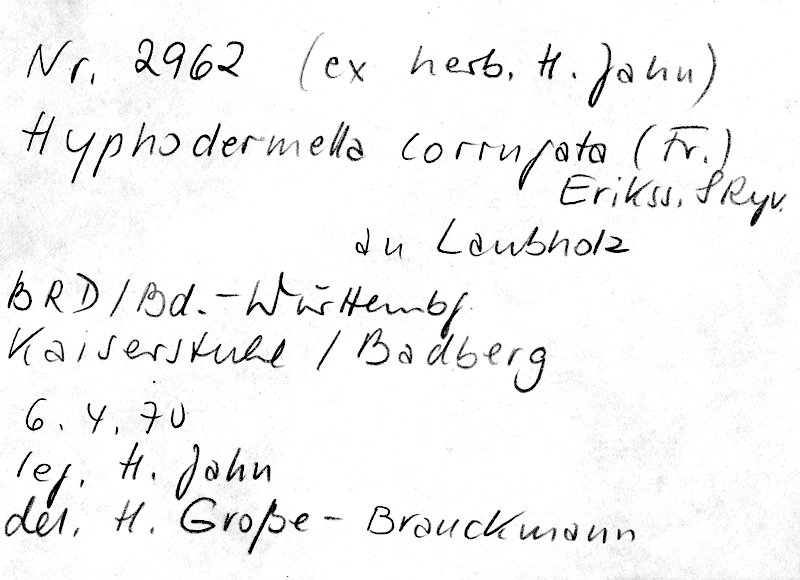 Nr. 2962 (ex herb. H. Jahn)
Hyphodermella corrugata (Fr.)
Erikss. & Ryv.
an Laubholz
BRD / Bd.-Württembg.
Kaiserstuhl / Badberg
6. 4. 70
leg. H. Jahn
det. H. Große-Brauckmann